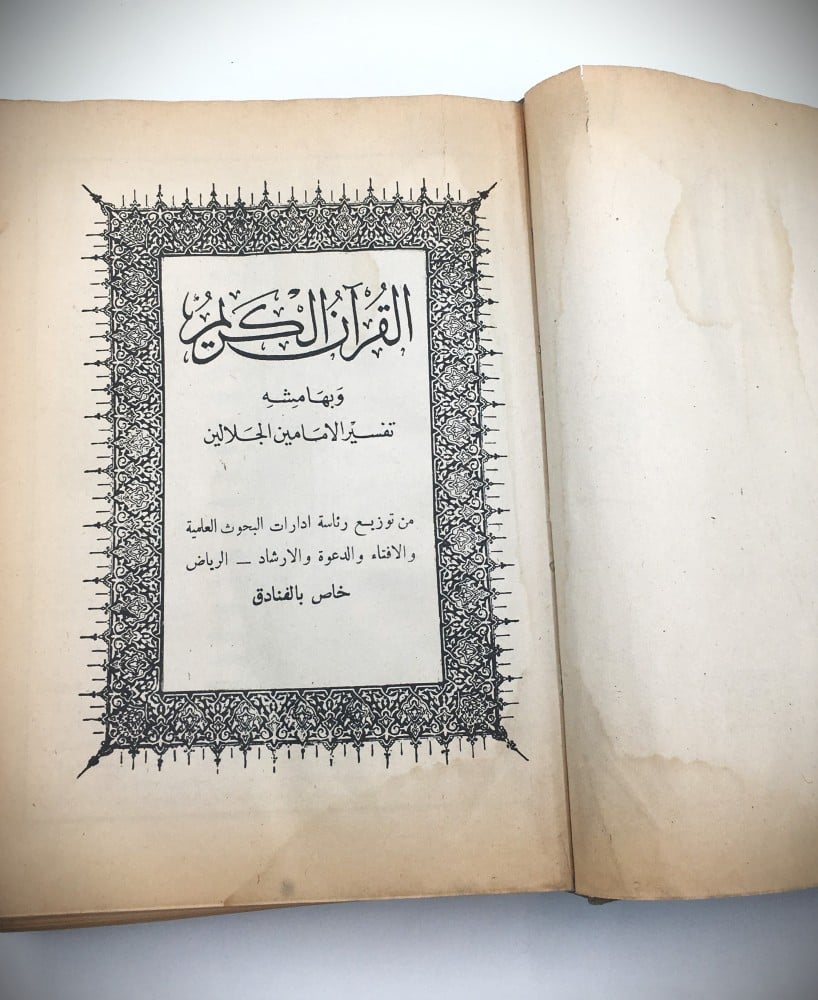 القُرآنُ الكَريمُ
وَبهَامِشهِ
تفسيْر الامَامين الجَلالين
من توزيع رئاسة ادارات البحوث العلمية
والافتاء والدعوة والارشاد ــ الرياض
خاص بالفنادق